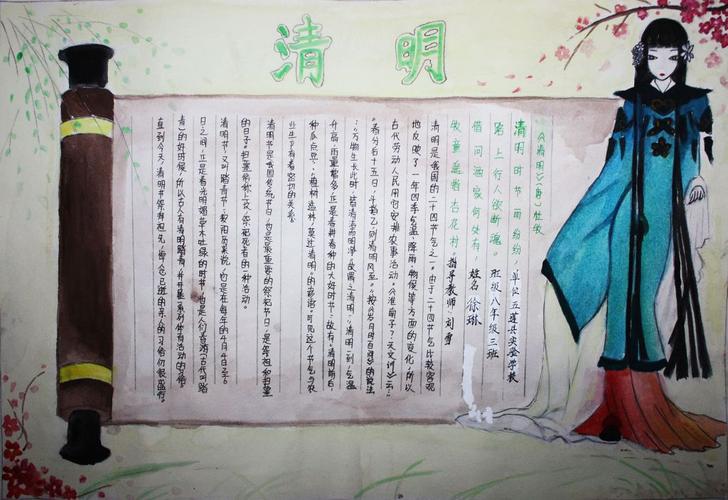 清明
《清明》(唐)杜牧
清明时节雨纷纷，
路上行人欲断魂。
借问酒家何处有，
牧童遥指杏花村。
单位五莲县实验学校
班级八年级三班
姓名徐琳
指导教师：刘雪
清明是我国的二十四节气之一。由于二十四节气比较客观
地反映了一年四季气温、降雨、物候等方面的变化，所以
古代劳动人民用它安排农事活动。《淮南子·天文训》云：
“春分后十五日，斗指乙，则清明风至。”按《岁时百问》的说法
：“万物生长此时，皆清洁而明净。故谓之清明。”清明一到，气温
升高，雨量增多，正是春耕春种的大好时节。故有“清明前后，
种瓜点豆”、“植树造林，莫过清明”的农谚。可见这个节气与农
业生产有着密切的关系。
清明节是我国传统节日，也是最重要的祭祀节日，是祭祖和扫墓
的日子。扫墓俗称上坟，祭祀死者的一种活动。
清明节，又叫踏青节，按阳历来说，它是在每年的4月4日至6
日之间，正是春光明媚草木吐绿的时节，也是人们春游(古代叫踏
青)的好时候，所以古人有清明踏青，并开展一系列体育活动的习俗。
直到今天，清明节祭拜祖先，悼念已逝的亲人的习俗仍很盛行。